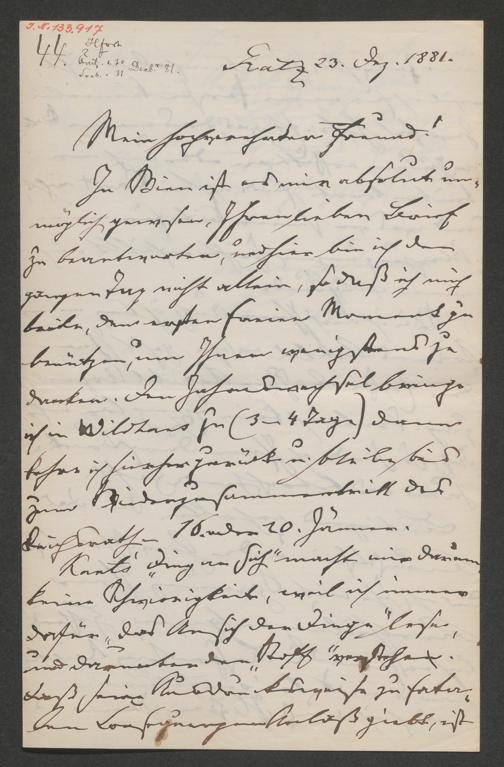 I.N. 133.917
44.
Graz 23. Dez. 1881.
Mein hochverehrter Freund!
In Wien ist es mir absolut un-
möglich gewesen, Ihren lieben Brief
zu beantworten, und hier bin ich den
ganzen Tag nicht allein, so daß ich mich
beeile, den ersten freien Moment zu
benützen, um Ihnen wenigstens zu
danken. Den Jahreswechsel bringe
ich in Wildhaus zu (3–4 Tage) dann
kehre ich hierher zurück u. bleibe bis
zum Wiederzusammentritt des
Reichsrathes 16. oder 20. Jänner.
Kants „Ding an sich" macht mir darum
keine Schwierigkeit, weil ich immer
dafür „das Ansich der Dinge" lese,
und darunter den „Stoff" verstehe.
Daß seine Ausdrucksweise zu fata-
len Consequenzen Anlaß giebt, ist